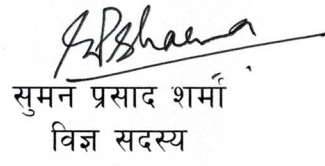 सुमन प्रसाद शर्मा
विज्ञ सदस्य